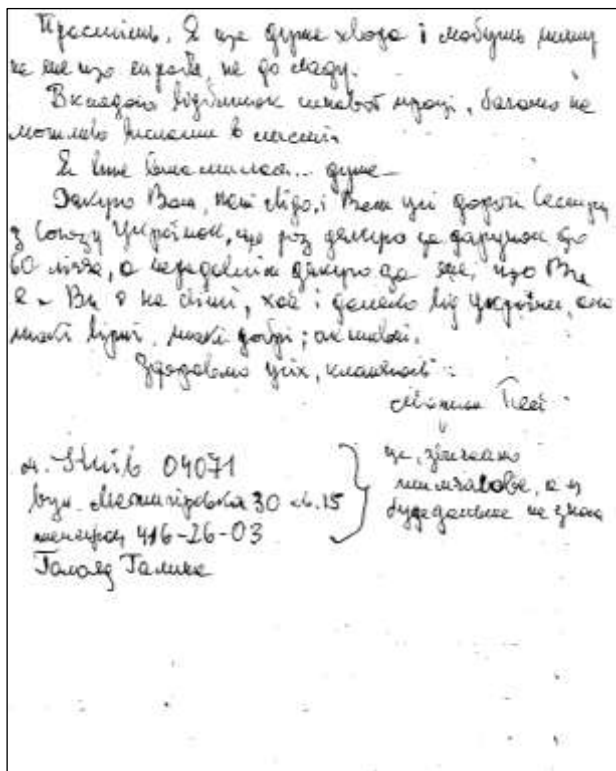 Простіть. Я ще дуже хвора і мабуть пишу
не те що треба, не до ладу.
Вкладаю відбиток синової праці, багато не
можливо вислати в листі.
Я вже втомилася... дуже
Дякую Вам, пані Лідо, і Вам усі дорогі Сестри
з Союзу Українок, ще раз дякую за дарунок до
60 ліття, а передовсім дякую за те, що Ви
є – Ви є на світі, хоч і далеко від України, але
такі вірні, такі добрі, активні.
Здоровлю усіх, кланяюсь
м. Київ 04071
вул. Межигірська 30 к. 15
телефон 416-26-03
Галина
це, звичайно
тимчасове, а що
буде дальше не знаю